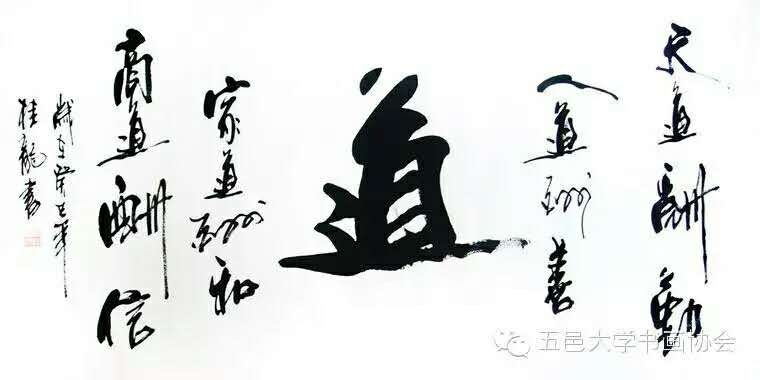 天道酬勤
人道酬善
道
家道酬和
商道酬信
歲在癸巳年
桂龍書
五邑大学书画协会